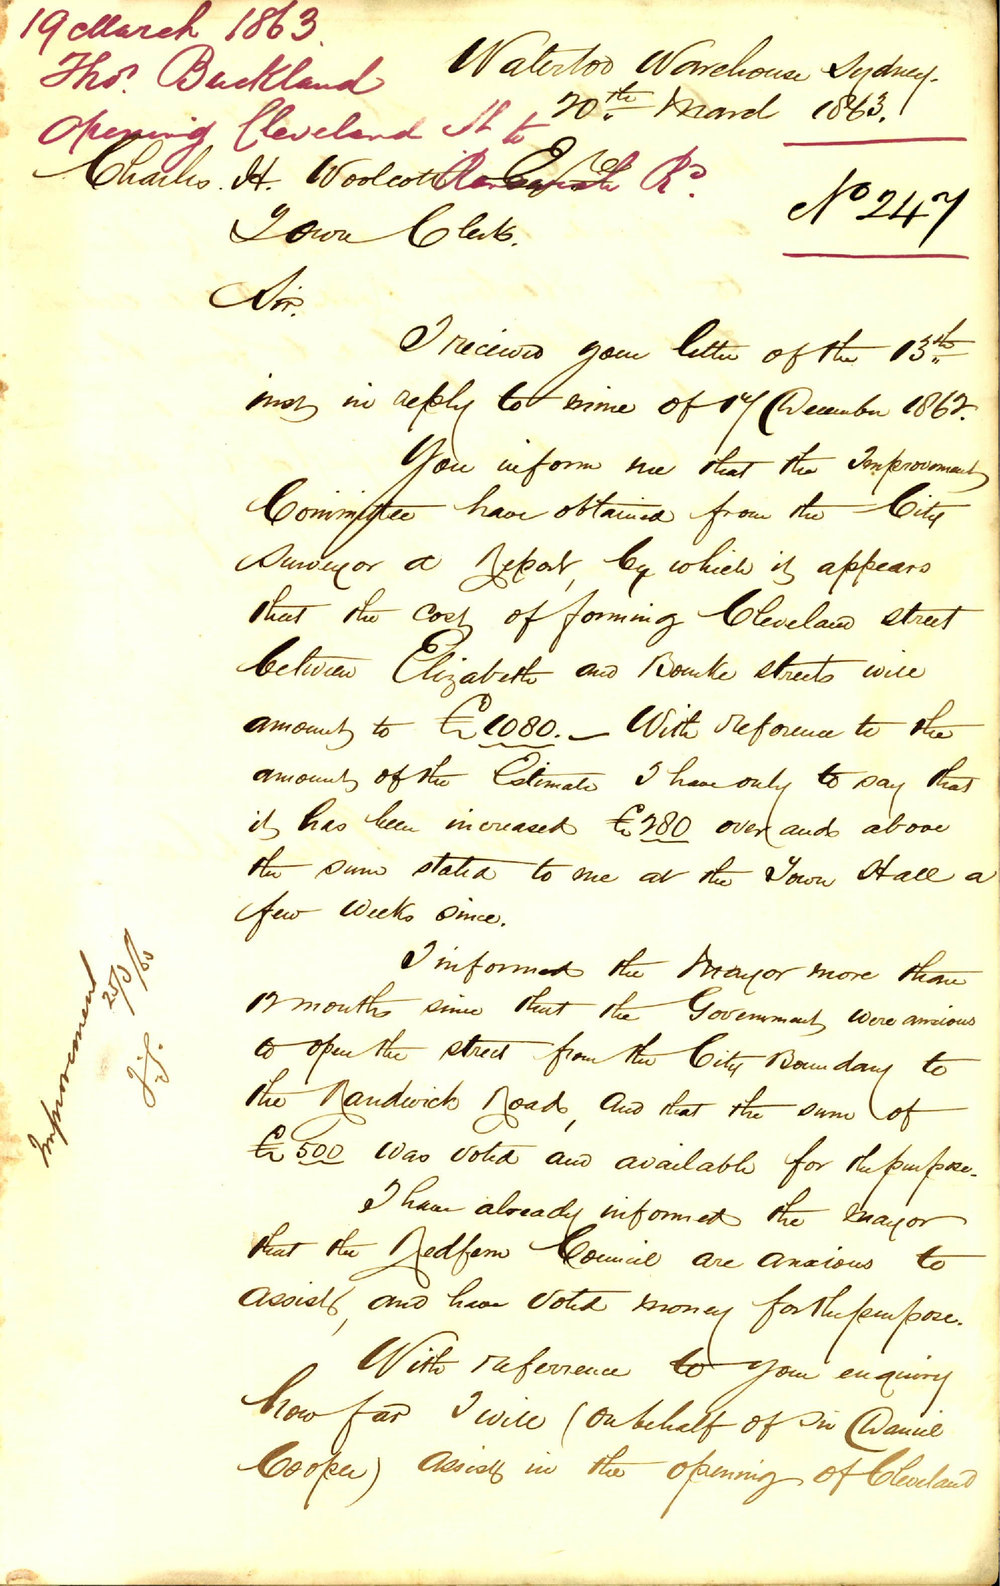 19 March 1863
Thos. Buckland
Opening Cleveland St to
Randwick Rd.
Waterloo Warehouse Sydney.
20th March 1863.
No 247
Charles H. Woolcott Esqre
Town Clerk.
Sir.
I received your letter of the 13th
inst in reply to mine of 17 December 1862.
You inform me that the Improvement
Committee have obtained from the City
Surveyor a Report, by which it appears
that the cost of forming Cleveland street
between Elizabeth and Bourke streets will
amount to £1080. — With reference to the
amount of the Estimate I have only to say that
it has been increased £280 over and above
the sum stated to me at the Town Hall a
few weeks since.
I informed the Mayor more than
12 months since that the Government were anxious
to open the street from the City Boundary to
the Randwick Road, and that the sum of
£500 was voted and available for the purpose.
I have already informed the Mayor
that the Redfern Council are anxious to
assist, and have voted money for the purpose.
With reference to your enquiry
how far I will (on behalf of Sir Daniel
Cooper) assist in the opening of Cleveland
Improvement